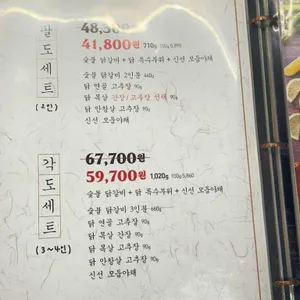 팔도세트
(2인)
48,300원
41,800원 710g 100g 5,890
숯불 닭갈비 + 닭 특수부위 + 신선 모둠야채
숯불 닭갈비 2인분 440g
닭 연골 고추장 90g
닭 목살 간장/고추장 선택 90g
닭 안창살 고추장 90g
신선 모둠야채
각도세트
(3~4인)
67,700원
59,700원 1,020g 100g 5,860
숯불 닭갈비 + 닭 특수부위 + 신선 모둠야채
숯불 닭갈비 3인분 660g
닭 연골 고추장 90g
닭 목살 간장 90g
닭 목살 고추장 90g
닭 안창살 고추장 90g
신선 모둠야채